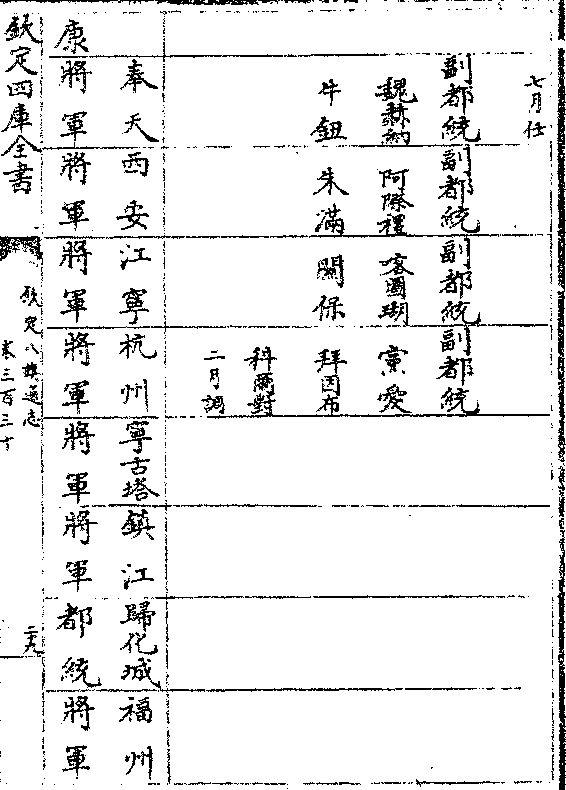 七月任
副都統 副都統 副都統 副都統
魏赫納 喀圖瑚
牛鈕 朱滿 關保 拜因布
科爾對
二月調
奉天 西安 江寧 杭州 寧古塔 鎮江 歸化城 福州
康 將軍 將軍 將軍 將軍 將軍 將軍 都統 將軍
欽定四庫全書
欽定八旗通志
卷三百三十